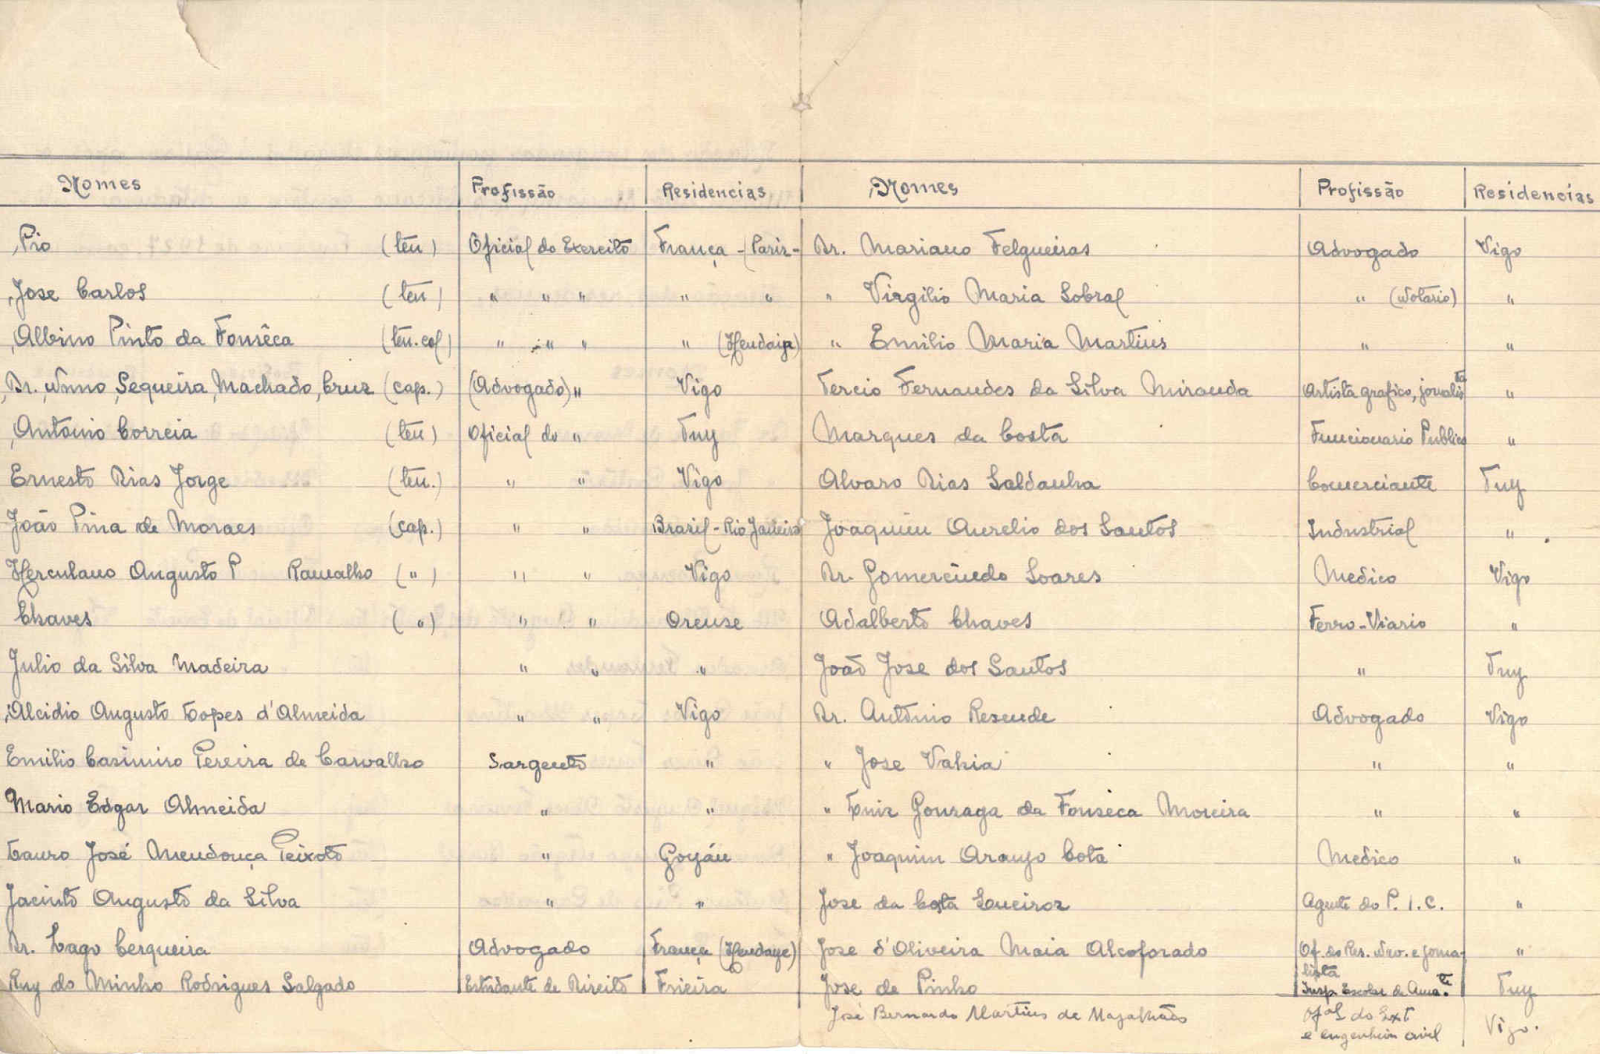 Nomes Profissão Residencias
Pio (ten) Oficial do Exercito França - (Paris-
Jose Carlos (ten) " " " " "
Albino Pinto da Fonsêca (ten. cel) " " " " (Hendaia)
Dr. Nuno Sequeira Machado, Cruz (cap.) (Advogado) " Vigo
Antonio Correia (ten) Oficial do " Tuy
Ernesto Dias Jorge (ten.) " " Vigo
João Pina de Moraes (cap.) " " Brazil - Rio Janeiro
Herculano Augusto P Ramalho ( " ) " " Vigo
Chaves ( " ) " " Orense
Julio da Silva Madeira " " "
Alcidio Augusto Lopes d'Almeida " " Vigo
Emilio Casimiro Pereira de Carvalho Sargento "
Mario Edgar Almeida " "
Lauro José Mendonça Peixoto " Goyán
Jacinto Augusto da Silva " "
Dr. Lago Cerqueira Advogado França (Hendaye)
Ruy do Minho Rodrigues Salgado Estudante de Direito Frieira
Nomes Profissão Residencias
Dr. Mariano Felgueiras Advogado Vigo
" Virgilio Maria Sobral " (Notario) "
" Emilio Maria Martins " "
Tercio Fernandes da Silva Miranda Artista grafico, jornalista "
Marques da Costa Funcionario Publico "
Alvaro Dias Saldanha Comerciante Tuy
Joaquim Aurelio dos Santos Industrial "
Dr. Gomercindo Soares Medico Vigo
Adalberto Chaves Ferro-Viario "
João Jose dos Santos " Tuy
Dr. António Resende Advogado Vigo
" Jose Vahia " "
" Luiz Gonzaga da Fonseca Moreira " "
" Joaquim Araujo Cota Medico "
Jose da Costa Sueiroz Agente do P. I. C. "
Jose d'Oliveira Maia Alcoforado Of. do Res. Nav. e jorna-
lista "
Jose de Pinho Insp. Escolar de Amate Tuy
José Bernardo Martins de Magalhães Ofal do Ext
e engenheiro civil Vigo.